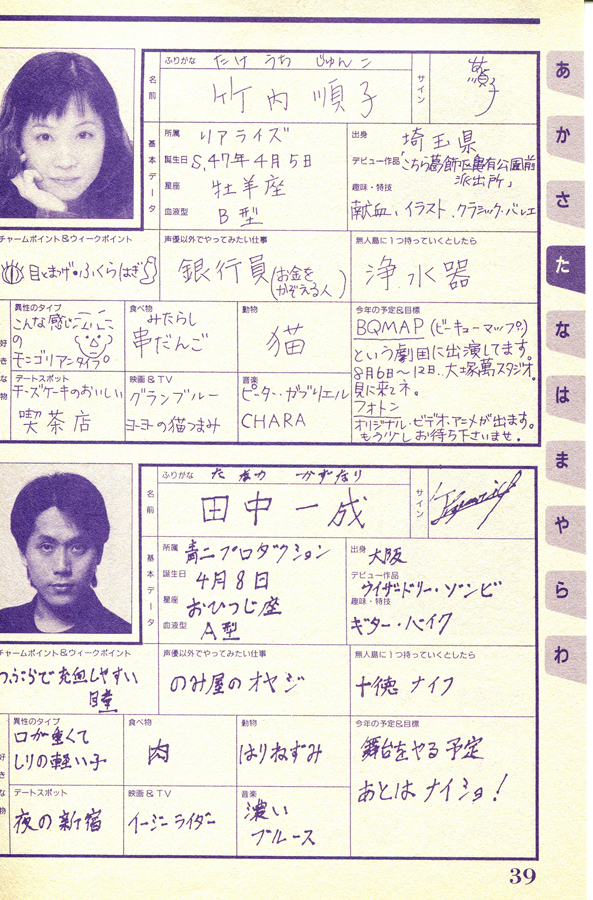 ふりがな たけ うち じゅん こ
名前 竹内 順子
サイン 順子
基本データ
所属 リアライズ
誕生日 S.47年4月5日
星座 牡羊座
血液型 B型
出身 埼玉県
デビュー作品 「こちら葛飾区亀有公園前
派出所」
趣味・特技
献血、イラスト、クラシック・バレエ
チャームポイント&ウィークポイント
目とまつげ・ふくらはぎ
声優以外でやってみたい仕事
銀行員(お金を
かぞえる人)
無人島に1つ持っていくとしたら
浄水器
好きな物
異性のタイプ
こんな感じ
の
モンゴリアンタイプ
食べ物
みたらし
串だんご
動物
猫
デートスポット
チーズケーキのおいしい
喫茶店
映画&TV
グランブルー
ヨーヨーの猫つまみ
音楽
ピーター・ガブリエル
CHARA
今年の予定&目標
BQMAP(ビーキューマップ)
という劇団に出演してます。
8月6日〜12日、大塚萬スタジオ。
見に来てネ。
フォトン
オリジナル・ビデオ・アニメが出ます。
もう少しお待ち下さいませ。
ふりがな たなか かずなり
名前 田中一成
サイン
基本データ
所属 青二プロダクション
誕生日 4月8日
星座 おひつじ座
血液型 A型
出身 大阪
デビュー作品
ウィザードリー・ゾンビ
趣味・特技
ギター・バイク
チャームポイント&ウィークポイント
つぶらで充血しやすい
瞳
声優以外でやってみたい仕事
のみ屋のオヤジ
無人島に1つ持っていくとしたら
十徳ナイフ
好きな物
異性のタイプ
口が重くて
しりの軽い子
食べ物
肉
動物
はりねずみ
デートスポット
夜の新宿
映画&TV
イージーライダー
音楽
濃い
ブルース
今年の予定&目標
舞台をやる予定
あとはナイショ!
あ
か
さ
た
な
は
ま
や
ら
わ
39